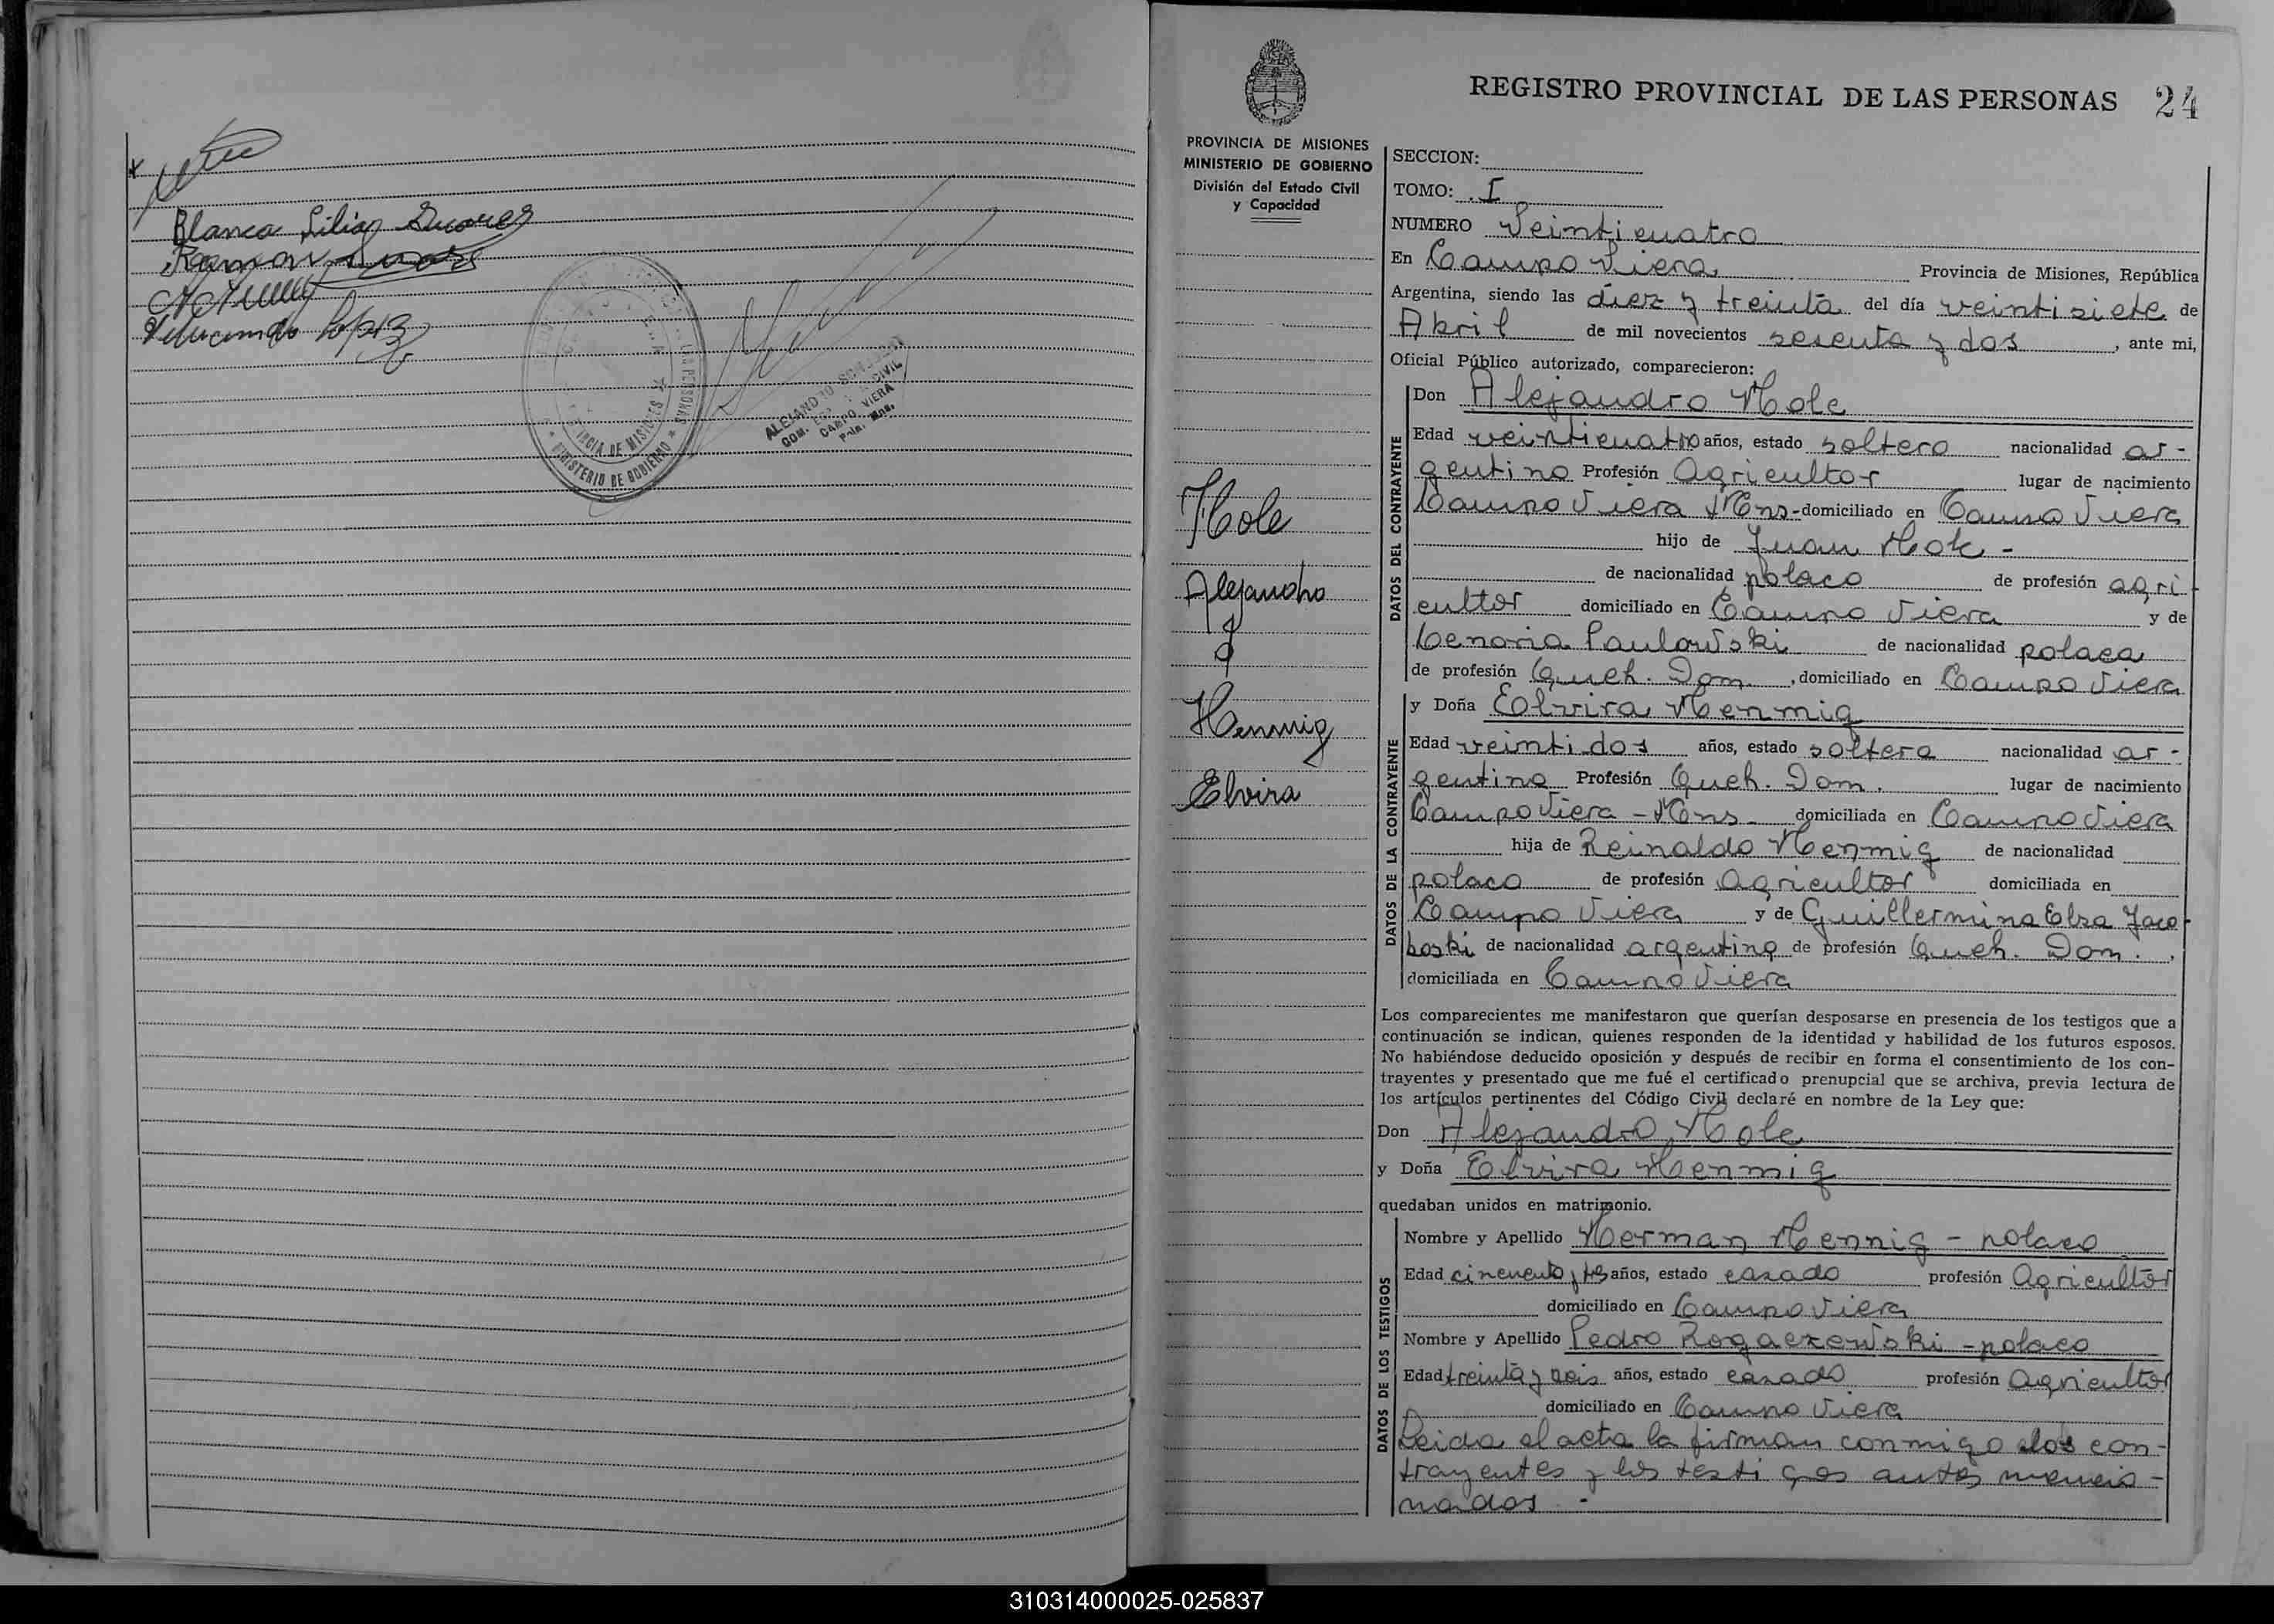 Blanca Lilia Suarez
Ramon Suarez
MINISTERIO DE GOBIERNO
PROVINCIA DE MISIONES
CAMPO VIERA
REGISTRO PROVINCIAL DE LAS PERSONAS 24
PROVINCIA DE MISIONES
MINISTERIO DE GOBIERNO
División del Estado Civil
y Capacidad
Hole
Alejandro
y
Hennig
Elvira
SECCION:
TOMO: I
NUMERO Veinticuatro
En Campo Viera Provincia de Misiones, República
Argentina, siendo las diez y treinta del día veintisiete de
Abril de mil novecientos sesenta y dos, ante mi,
Oficial Público autorizado, comparecieron:
DATOS DEL CONTRAYENTE
Don Alejandro Hole
Edad veinticuatro años, estado soltero nacionalidad ar-
gentino Profesión Agricultor lugar de nacimiento
Campo Viera Mns- domiciliado en Campo Viera
hijo de Juan Hole -
de nacionalidad polaco de profesión agri
cultor domiciliado en Campo Viera y de
Cenoria Paulowski de nacionalidad polaca
de profesión Queh. Dom., domiciliado en Campo Viera
DATOS DE LA CONTRAYENTE
y Doña Elvira Henmig
Edad veintidos años, estado soltera nacionalidad ar-
gentina Profesión Queh. Dom. lugar de nacimiento
Campo Viera - Mns - domiciliada en Campo Viera
hija de Reinaldo Henmig de nacionalidad
polaco de profesión Agricultor domiciliada en
Campo Viera y de Guillermina Elsa Jaco-
boski de nacionalidad argentina de profesión Queh. Dom.,
domiciliada en Campo Viera
Los comparecientes me manifestaron que querían desposarse en presencia de los testigos que a
continuación se indican, quienes responden de la identidad y habilidad de los futuros esposos.
No habiéndose deducido oposición y después de recibir en forma el consentimiento de los con-
trayentes y presentado que me fué el certificado prenupcial que se archiva, previa lectura de
los artículos pertinentes del Código Civil declaré en nombre de la Ley que:
Don Alejandro Hole
y Doña Elvira Henmig
quedaban unidos en matrimonio.
DATOS DE LOS TESTIGOS
Nombre y Apellido Herman Hennig - polaco
Edad cincuenta y tres años, estado casado profesión Agricultor
domiciliado en Campo Viera
Nombre y Apellido Pedro Rogaczewski - polaco
Edad treinta y seis años, estado casado profesión Agricultor
domiciliado en Campo Viera
Leida el acta la firman conmigo los con-
trayentes y los testigos antes mencio-
nados. -
310314000025-025837